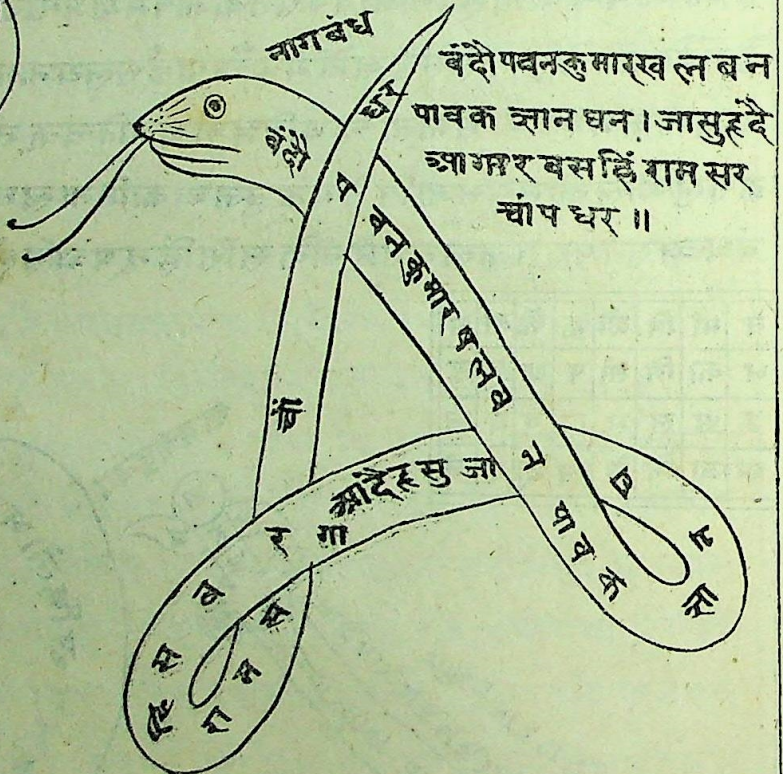 नागबंध
बंदौपवनकुमारखलबन
पावक ज्ञानघन।जासुहृदै
आगारबसहिंरामसर
चांपधर॥
बंदौ
प
वनकुमारषलव
न
पावक
ज्ञा
न
घ
न
जा
सु
हृ
दै
आ
गा
र
ब
स
हिं
रा
म
स
र
चां
धर